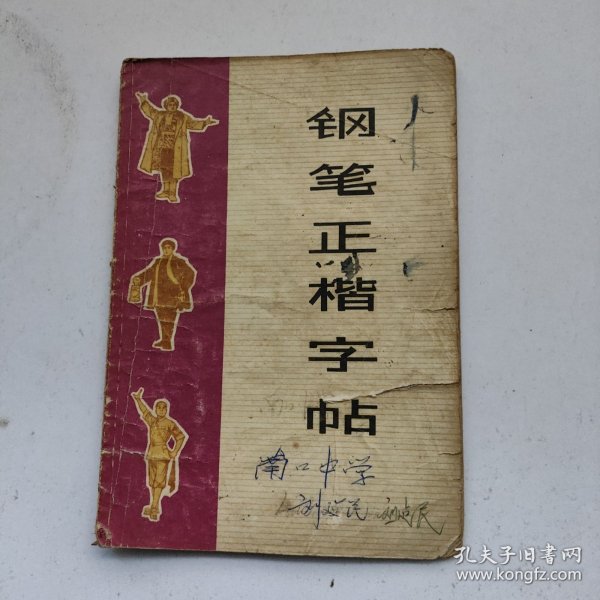 钢笔正楷字帖
南口中学
孔夫子旧书网
www.kongfz.com